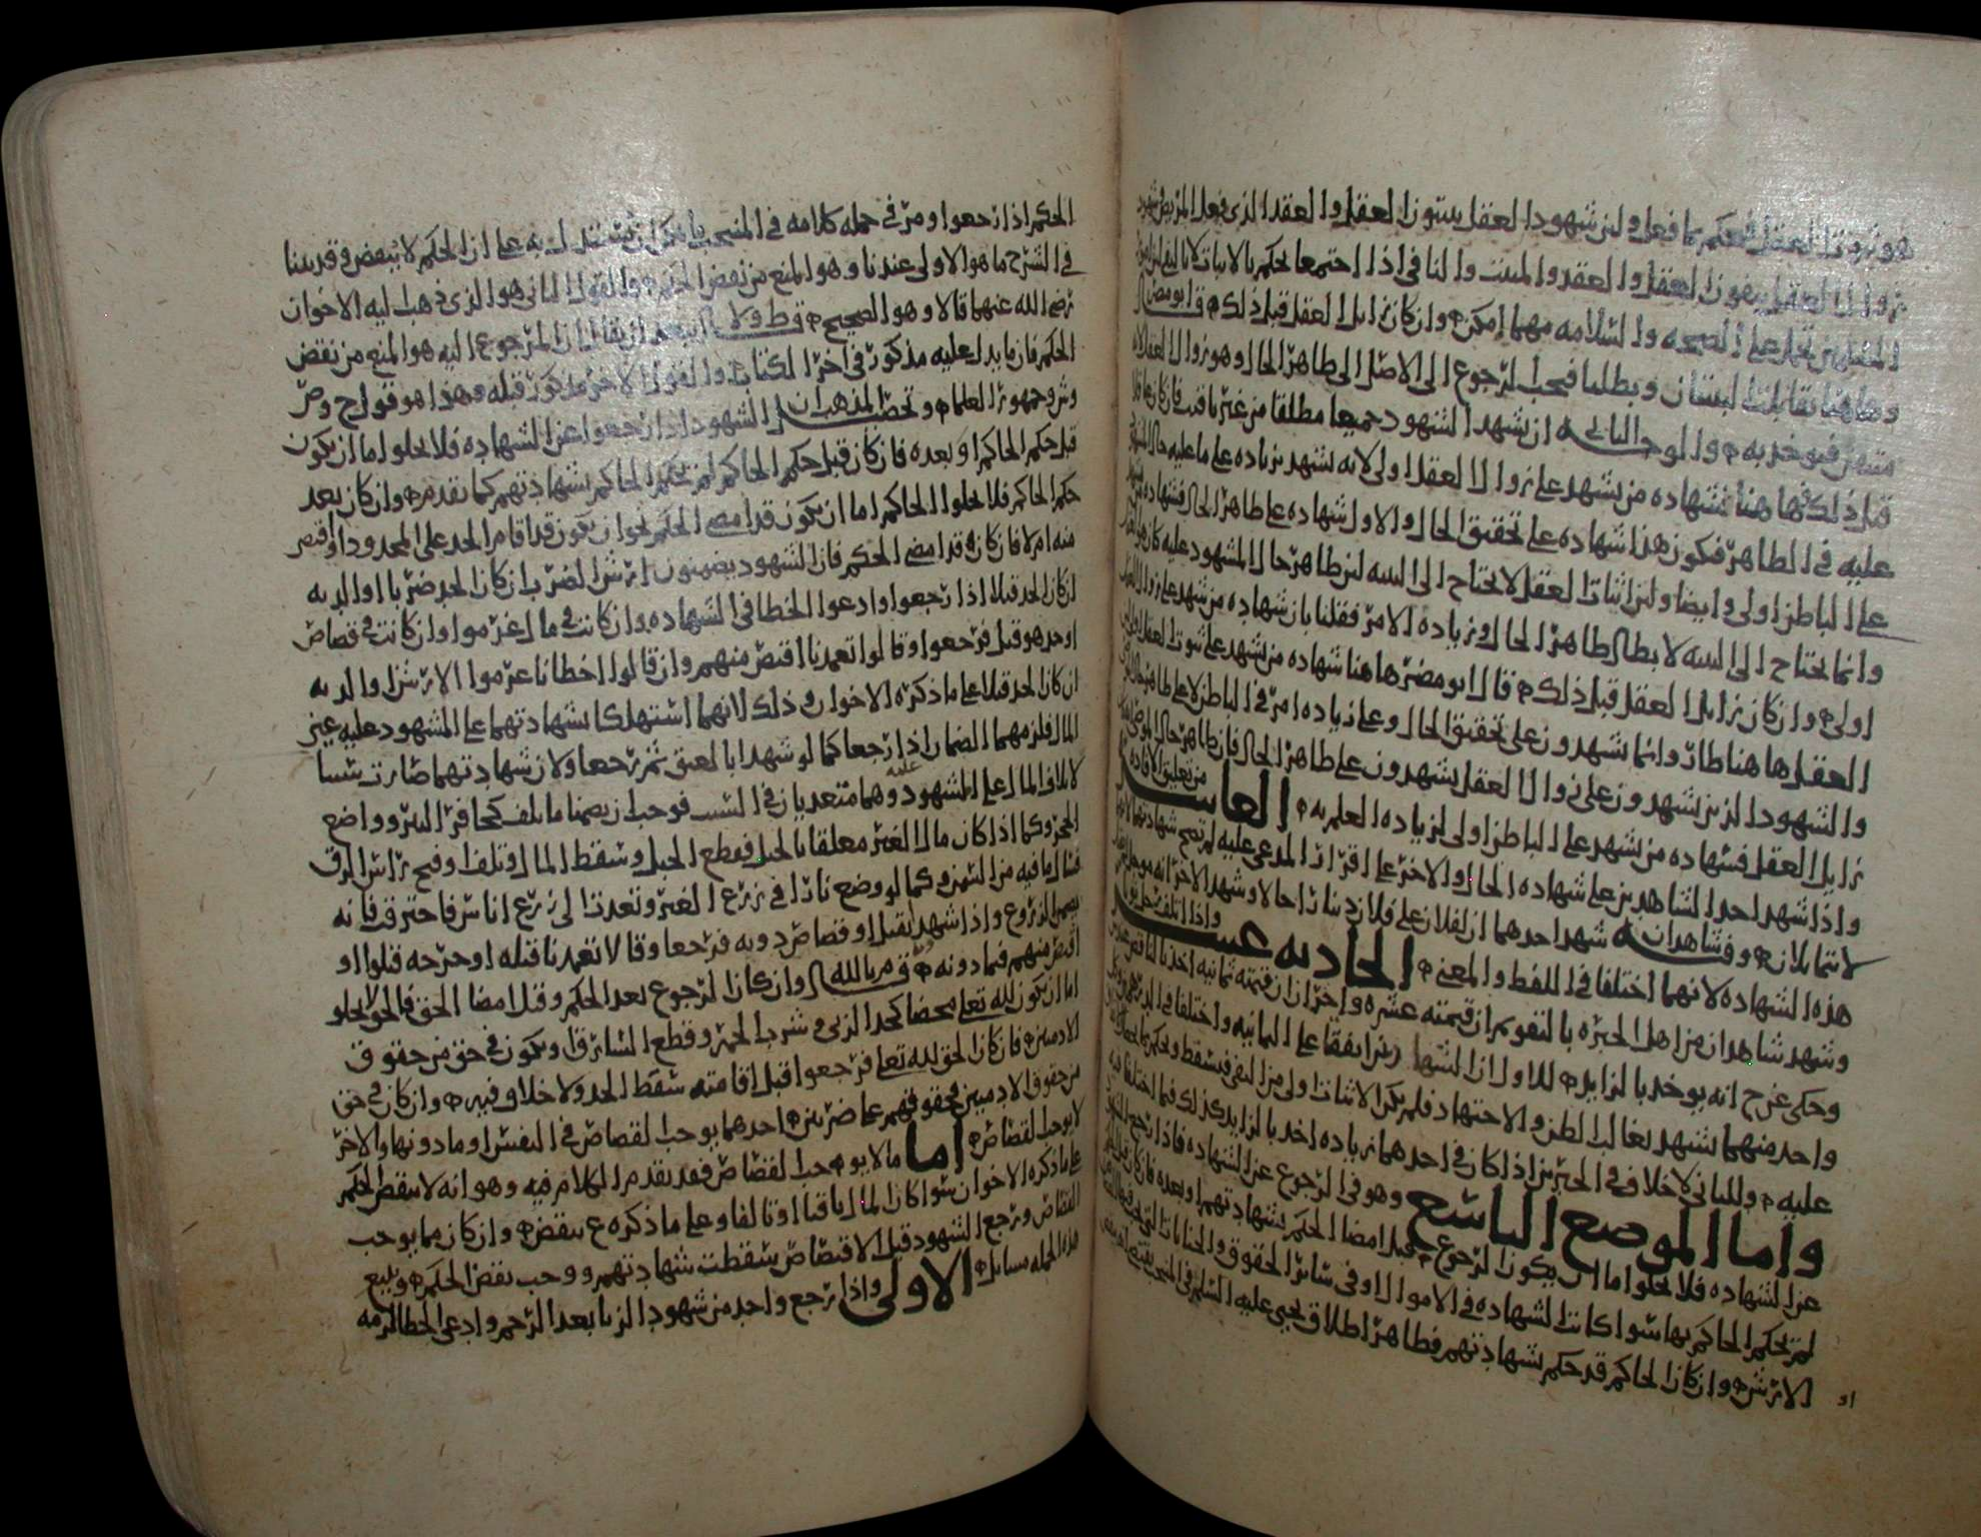 هو زوال العقل فنحكم بما فعل ولان شهود العقل يثبتون العقل والعقد الذي فعل المريض وشهود
زوال العقل ينفون العقل والعقد والمثبت والنافي اذا اجتمعا يحكم بالاثبات لا بالنفي
المسلمين تحمل على الصحه والسلامه مهما امكن وان كان زايل العقل قبل ذلك قال ابو مضر
وها هنا تقابلت البينتان وبطلتا فيجب الرجوع الى الاصل الى ظاهر الحال وهو زوال العقل
فيوخذ به والوجه الثاني ان يشهد الشهود جميعا مطلقا من غير تاقيت فان كان
قبل ذلك فها هنا شهاده من يشهد على زوال العقل اولى لانه يشهد بزياده على ما عليه حال
عليه في الظاهر فيكون هذا شهاده على تحقيق الحال والاول شهاده على ظاهر الحال فشهاده من
على الباطن اولى وايضا ولان اثبات العقل لا يحتاج الى البينه لان ظاهر حال المشهود عليه كان هو
وانما يحتاج الى البينه لابطال ظاهر الحال وزياده الامر فقلنا بان شهاده من شهد على زوال العقل
اولى وان كان زايل العقل قبل ذلك قال ابو مضر ها هنا شهاده من يشهد على ثبوت العقل اولى
العقل ها هنا طار وانما يشهدون على تحقيق الحال وعلى زياده امر في الباطن لا على ظاهر
والشهود الذين يشهدون على زوال العقل يشهدون على ظاهر الحال فان ظاهر حال المريض
زايل العقل فشهاده من يشهد على الباطن اولى لزياده العلم به العاشره من تعليق الافاده
واذا شهد احد الشاهدين على شهاده الحال والاخر على اقرار المدعى عليه لم تصح شهادتهما
لانتما بلان وشاهدان شهد احدهما ان لفلان على فلان دينارا حالا وشهد الاخر انه موجل
هذه الشهاده لانهما اختلفا في اللفظ والمعنى الحاديه عشر واذا اتلف رجل ثوبا
وشهد شاهدان من اهل الخبره بالتقويم ان قيمته عشره واخران ان قيمته ثمانيه اخذنا بالناقص
وحكى عن ح انه يوخذ بالزايد للاول ان الشهادتين اتفقا على الثمانيه واختلفا في الدرهمين
واحد منهما يشهد بغالب الظن والاجتهاد فلم يكن الاثبات اولى من النفي فيسقط ويحكم بما اتفقا
عليه وللثاني لا خلاف في الخبرين اذا كان في احدهما زياده اخذ بالزايد كذلك فيما اختلفا فيه
واما الموضع التاسع وهو في الرجوع عن الشهاده فاذا رجع الشهود
عن الشهاده فلا يخلوا اما ان يكون الرجوع قبل امضا الحكم بشهادتهم او بعده فان كان قبل
لم يحكم الحاكم بها سوا كانت الشهاده في الاموال او في سائر الحقوق والجنايات التي يجب فيها القصاص او
الارش وان كان الحاكم قد حكم بشهادتهم فظاهر اطلاق يحيى عليه السلم في المنتخب يقتضي
او
الحكم اذا رجعوا ومر في جمله كلامه في المنتخب ما يمكن ان يستدل به على ان الحكم لا ينقض وقد بينا
في الشرح ما هو الاولى عندنا وهو المنع من نقض الحكم والقول الثاني هو الذي ذهب اليه الاخوان
رضي الله عنهما قالا وهو الصحيح قال ط ولا يبعد ان يقال ان المرجوع اليه هو المنع من نقض
الحكم فان ما يدل عليه مذكور في اخر الكتاب والقول الاخر مذكور قبله وهذا هو قول ح وص
وش وجمهور العلما وتحصيل المذهب ان الشهود اذا رجعوا عن الشهاده فلا يخلوا اما ان يكون
قبل حكم الحاكم او بعده فان كان قبل حكم الحاكم لم يحكم الحاكم بشهادتهم كما تقدم وان كان بعد
حكم الحاكم فلا يخلوا الحاكم اما ان يكون قد امضى الحكم نحو ان يكون قد اقام الحد على المحدود او اقتص
منه ام لا فان كان قد امضى الحكم فان الشهود يضمنون ارش الضرب ان كان الحد ضربا او الديه
ان كان الحد قتلا اذا رجعوا وادعوا الخطا في الشهاده وان كانت في مال غرموا وان كانت في قصاص
او حد هو قتل فرجعوا وقالوا تعمدنا اقتص منهم وان قالوا اخطانا غرموا الارش او الديه
ان كان الحد قتلا على ما ذكره الاخوان وذلك لانهما استهلكا بشهادتهما على المشهود عليه عين
المال فلزمهما الضمان اذا رجعا كما لو شهدا بالعتق ثم رجعا ولان شهادتهما صارت سببا
لاتلاف المال على المشهود عليه وهما متعديان في السبب فوجب ان يضمنا ما تلف كحافر البير وواضع
الحجر وكما اذا كان مالا لغير معلقا بالحبل فقطع الحبل وسقط المال وتلف او فتح راس الزق
فسال ما فيه من السمن وكما لو وضع نارا في زرع الغير وتعدت الى زرع اناس فاحترق فانه
يضمن الزروع واذا شهدا بقتل او قصاص دونه فرجعا وقالا تعمدنا قتله او جرحه قتلوا او
اقتص منهم فيما دونه قال م بالله وان كان الرجوع بعد الحكم وقبل امضا الحق فالحق لا يخلو
اما ان يكون لله تعلى محضا كحد الزنى وشرب الخمر وقطع السارق او يكون في حق من حقوق
الادميين فان كان الحق لله تعلى فرجعوا قبل اقامته سقط الحد ولا خلاف فيه وان كان في حق
من حقوق الادميين فحقوقهم على ضربين احدهما يوجب القصاص في النفس او ما دونها والاخر
لا يوجب القصاص اما ما لا يوجب القصاص فقد تقدم الكلام فيه وهو انه لا ينقض الحكم
على ما ذكره الاخوان سوا كان المال باقيا او تالفا وعلى ما ذكره ع ينقض وان كان مما يوجب
القصاص ورجع الشهود قبل الاقتصاص سقطت شهادتهم ووجب نقض الحكم ويتبع
هذه الجمله مسايل الاولى واذا رجع واحد من شهود الزنا بعد الرجم وادعى الخطا لزمه